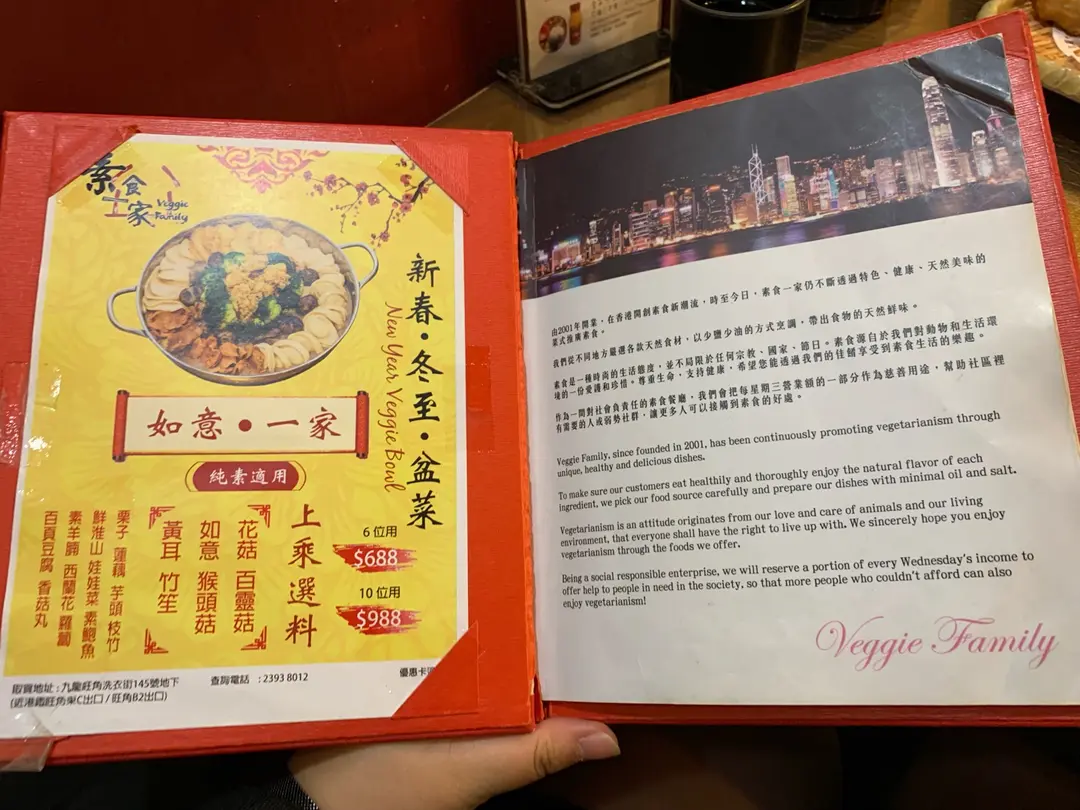 素食一家
Veggie
Family
新春•冬至•盆菜
New Year Veggie Bowl
如意•一家
純素適用
6 位用
$688
10 位用
$988
上乘選料
花菇 百靈菇
如意 猴頭菇
黃耳 竹笙
栗子 蓮藕 芋頭 枝竹
鮮淮山 娃娃菜 素鮑魚
素羊腩 西蘭花 蘿蔔
百頁豆腐 香菇丸
取貨地址 : 九龍旺角洗衣街145號地下
(近港鐵旺角東C出口 / 旺角B2出口)
查詢電話 : 2393 8012
優惠卡
由2001年開業，在香港開創素食新潮流，時至今日，素食一家仍不斷透過特色、健康、天然美味的
菜式推廣素食。
我們從不同地方嚴選各款天然食材，以少鹽少油的方式烹調，帶出食物的天然鮮味。
素食是一種時尚的生活態度，並不局限於任何宗教、國家、節日。素食源自於我們對動物和生活環
境的一份愛護和珍惜。尊重生命，支持健康，希望您能透過我們的佳餚享受到素食生活的樂趣。
作為一間對社會負責任的素食餐廳，我們會把每星期三營業額的一部分作為慈善用途，幫助社區裡
有需要的人或弱勢社群，讓更多人可以接觸到素食的好處。
Veggie Family, since founded in 2001, has been continuously promoting vegetarianism through
unique, healthy and delicious dishes.
To make sure our customers eat healthily and thoroughly enjoy the natural flavor of each
ingredient, we pick our food source carefully and prepare our dishes with minimal oil and salt.
Vegetarianism is an attitude originates from our love and care of animals and our living
environment, that everyone shall have the right to live up with. We sincerely hope you enjoy
vegetarianism through the foods we offer.
Being a social responsible enterprise, we will reserve a portion of every Wednesday's income to
offer help to people in need in the society, so that more people who couldn't afford can also
enjoy vegetarianism!
Veggie Family